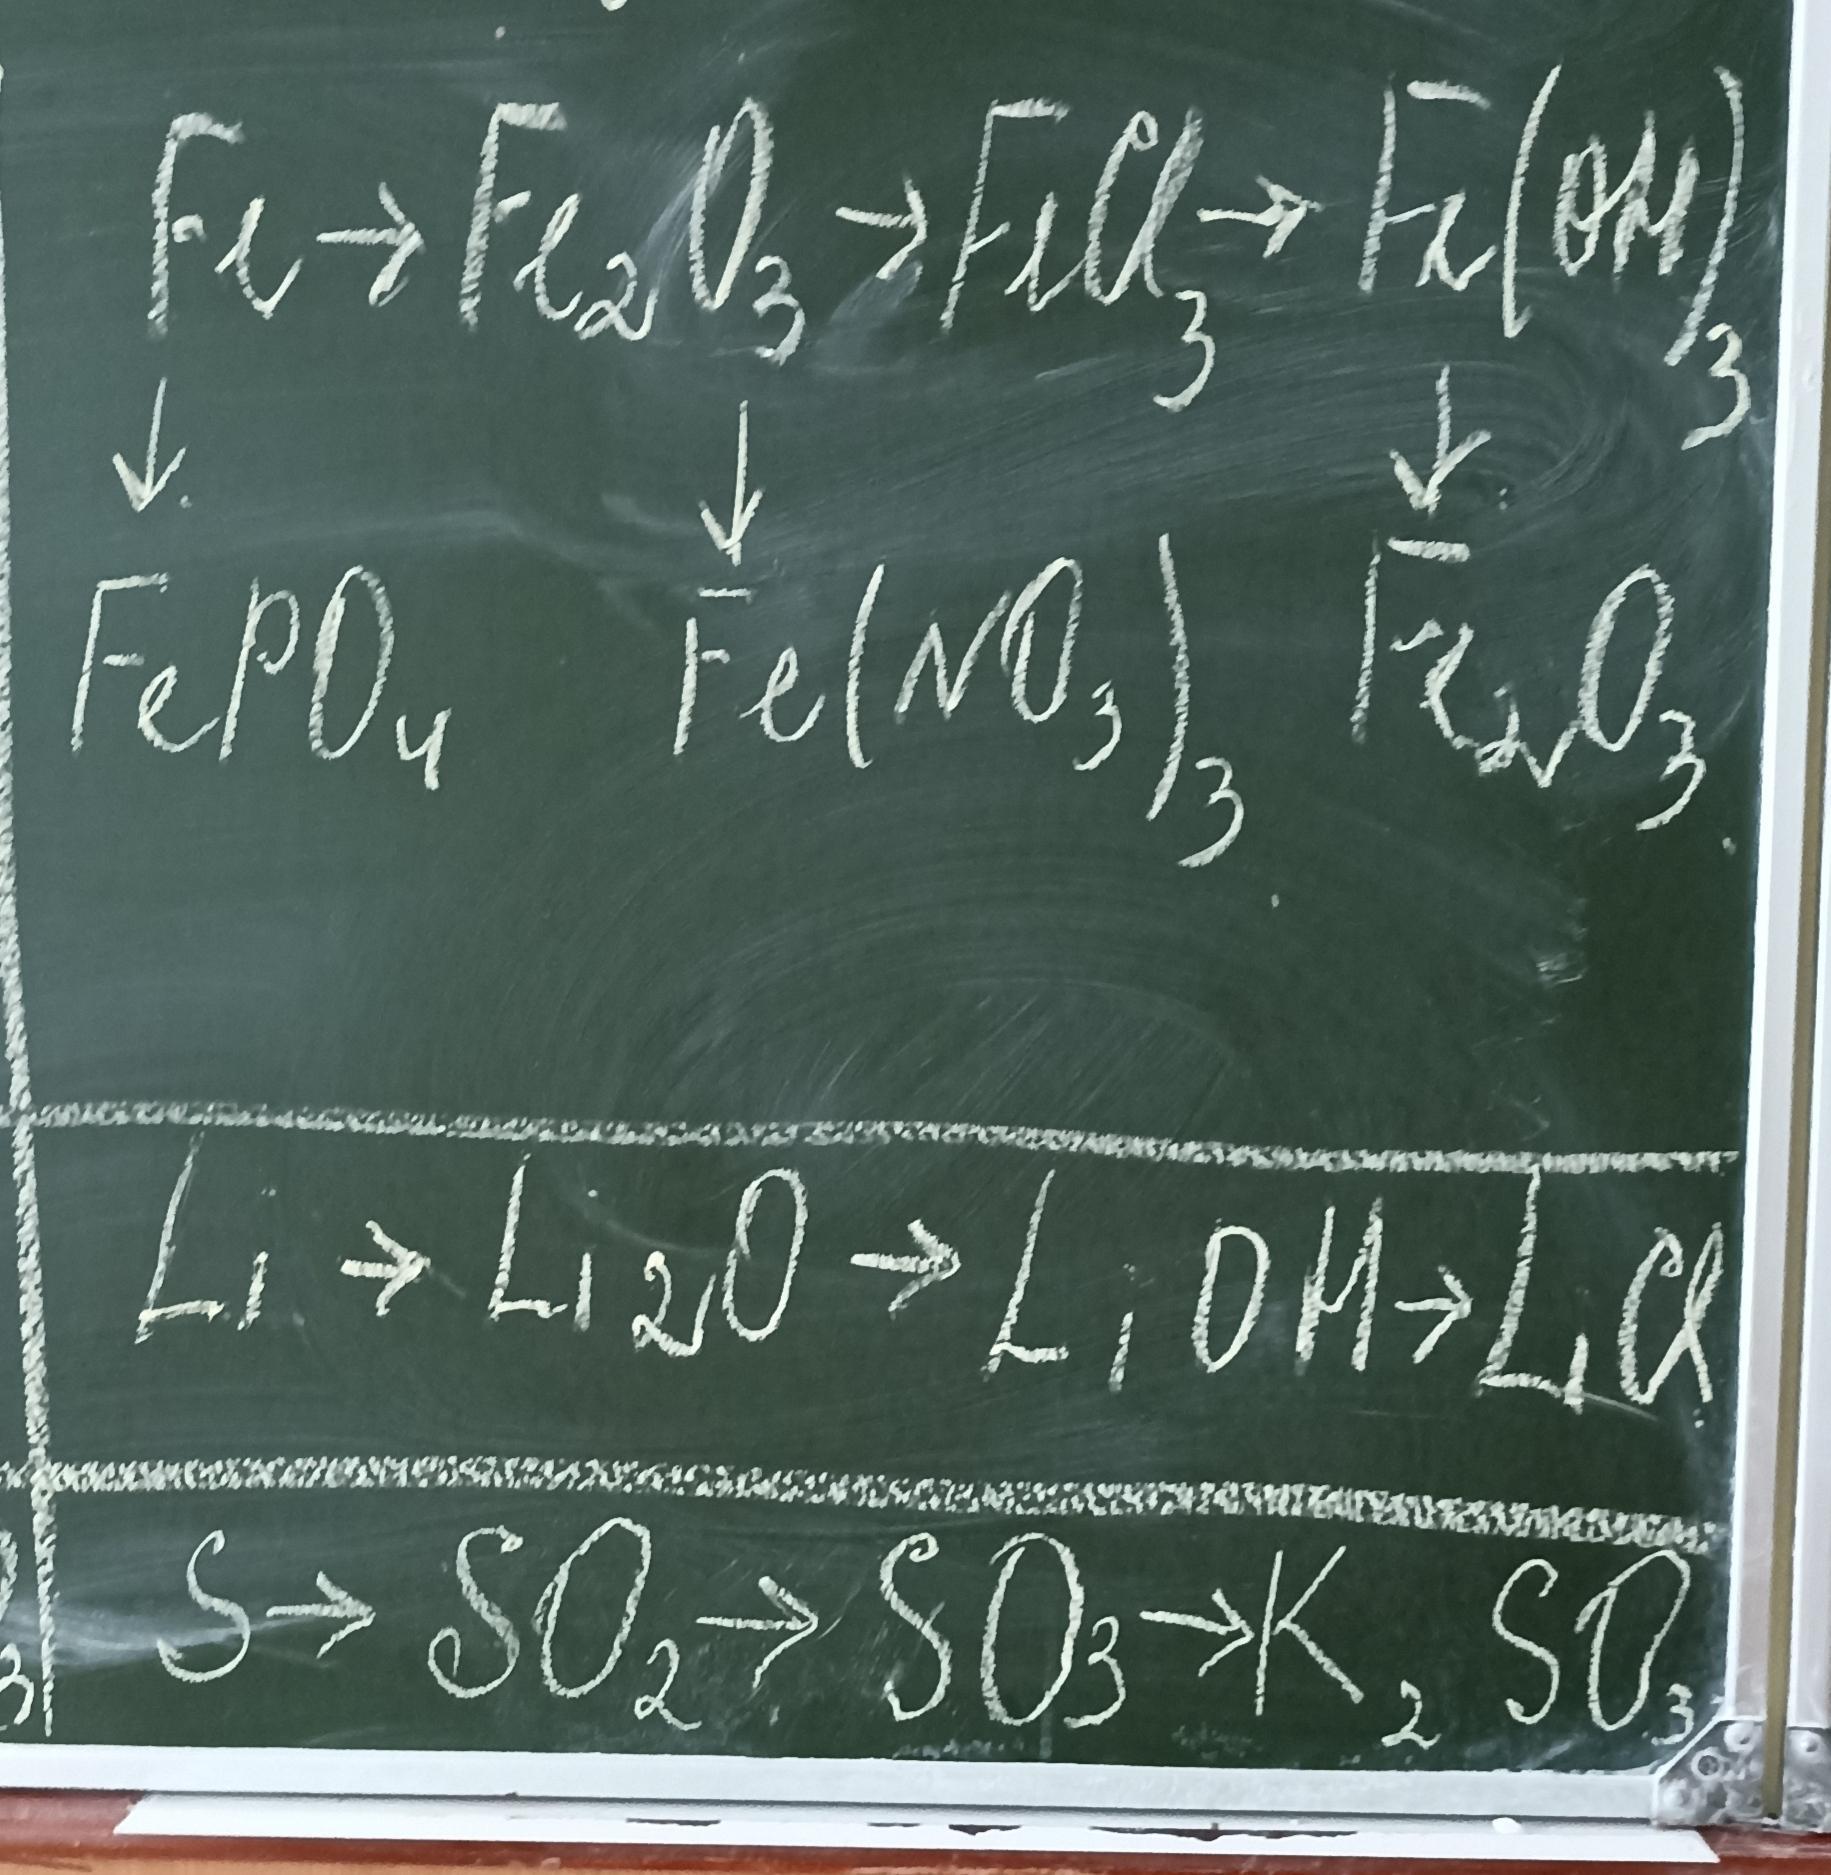 Fe → Fe₂O₃ → FeCl₃ → Fe(OH)₃
↓ ↓ ↓
FePO₄ Fe(NO₃)₃ Fe₂O₃
Li → Li₂O → LiOH → LiCl
S → SO₂ → SO₃ → K₂SO₃
3